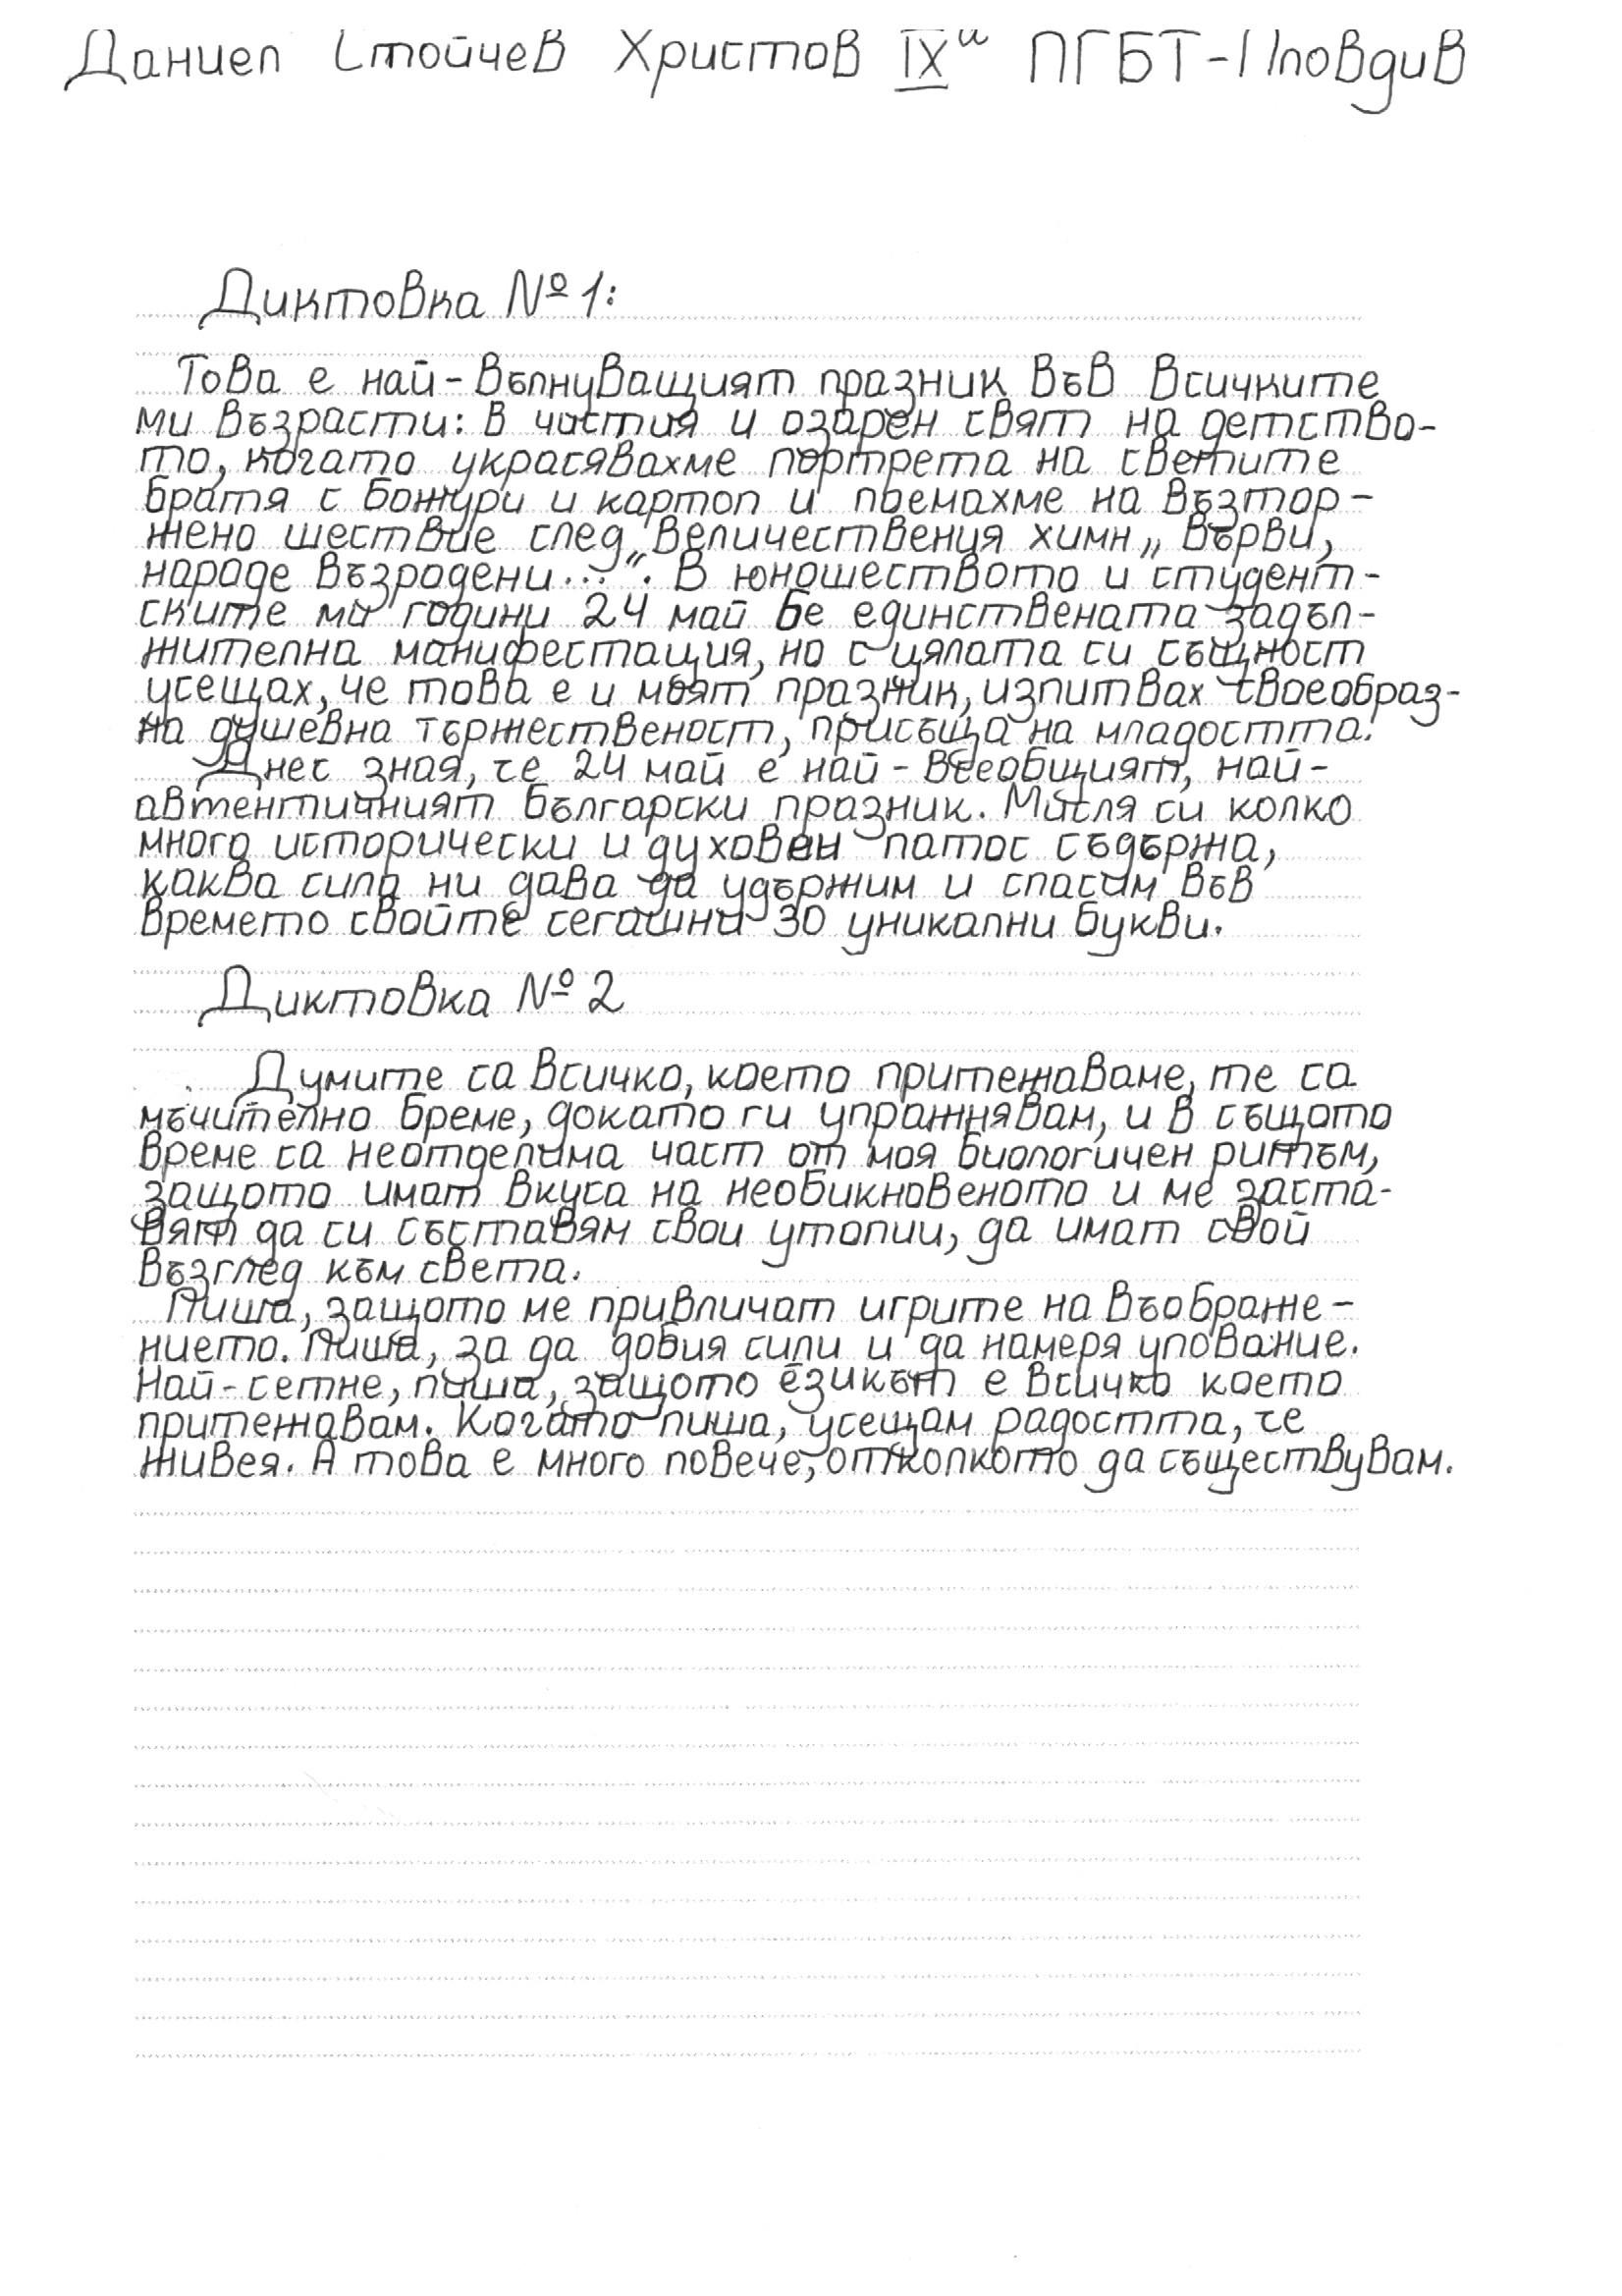 Даниел Стойчев Христов IXи ПГБТ-Пловдив
Диктовка № 1:
Това е най-вълнуващият празник във всичките
ми възрасти: в чистия и озарен свят на детство-
то, когато украсявахме портрета на светите
братя с божури и картоп и поемахме на възтор-
жено шествие след величествения химн „Върви,
народе възродени...". В юношеството и студент-
ските ми години 24 май бе единствената задъл-
жителна манифестация, но с цялата си същност
усещах, че това е и моят празник, изпитвах своеобраз-
на душевна тържественост, присъща на младостта.
Днес зная, че 24 май е най-всеобщият, най-
автентичният български празник. Мисля си колко
много исторически и духовен патос съдържа,
каква сила ни дава да удържим и спасим във
времето свойте сегашни 30 уникални букви.
Диктовка № 2
Думите са всичко, което притежаваме, те са
мъчително бреме, докато ги упражнявам, и в същото
време са неотделима част от моя биологичен ритъм,
защото имат вкуса на необикновеното и ме заста-
вят да си съставям свои утопии, да имат свой
възглед към света.
Пиша, защото ме привличат игрите на въображе-
нието. Пиша, за да добия сили и да намеря упование.
Най-сетне, пиша, защото езикът е всичко което
притежавам. Когато пиша, усещам радостта, че
живея. А това е много повече, отколкото да съществувам.